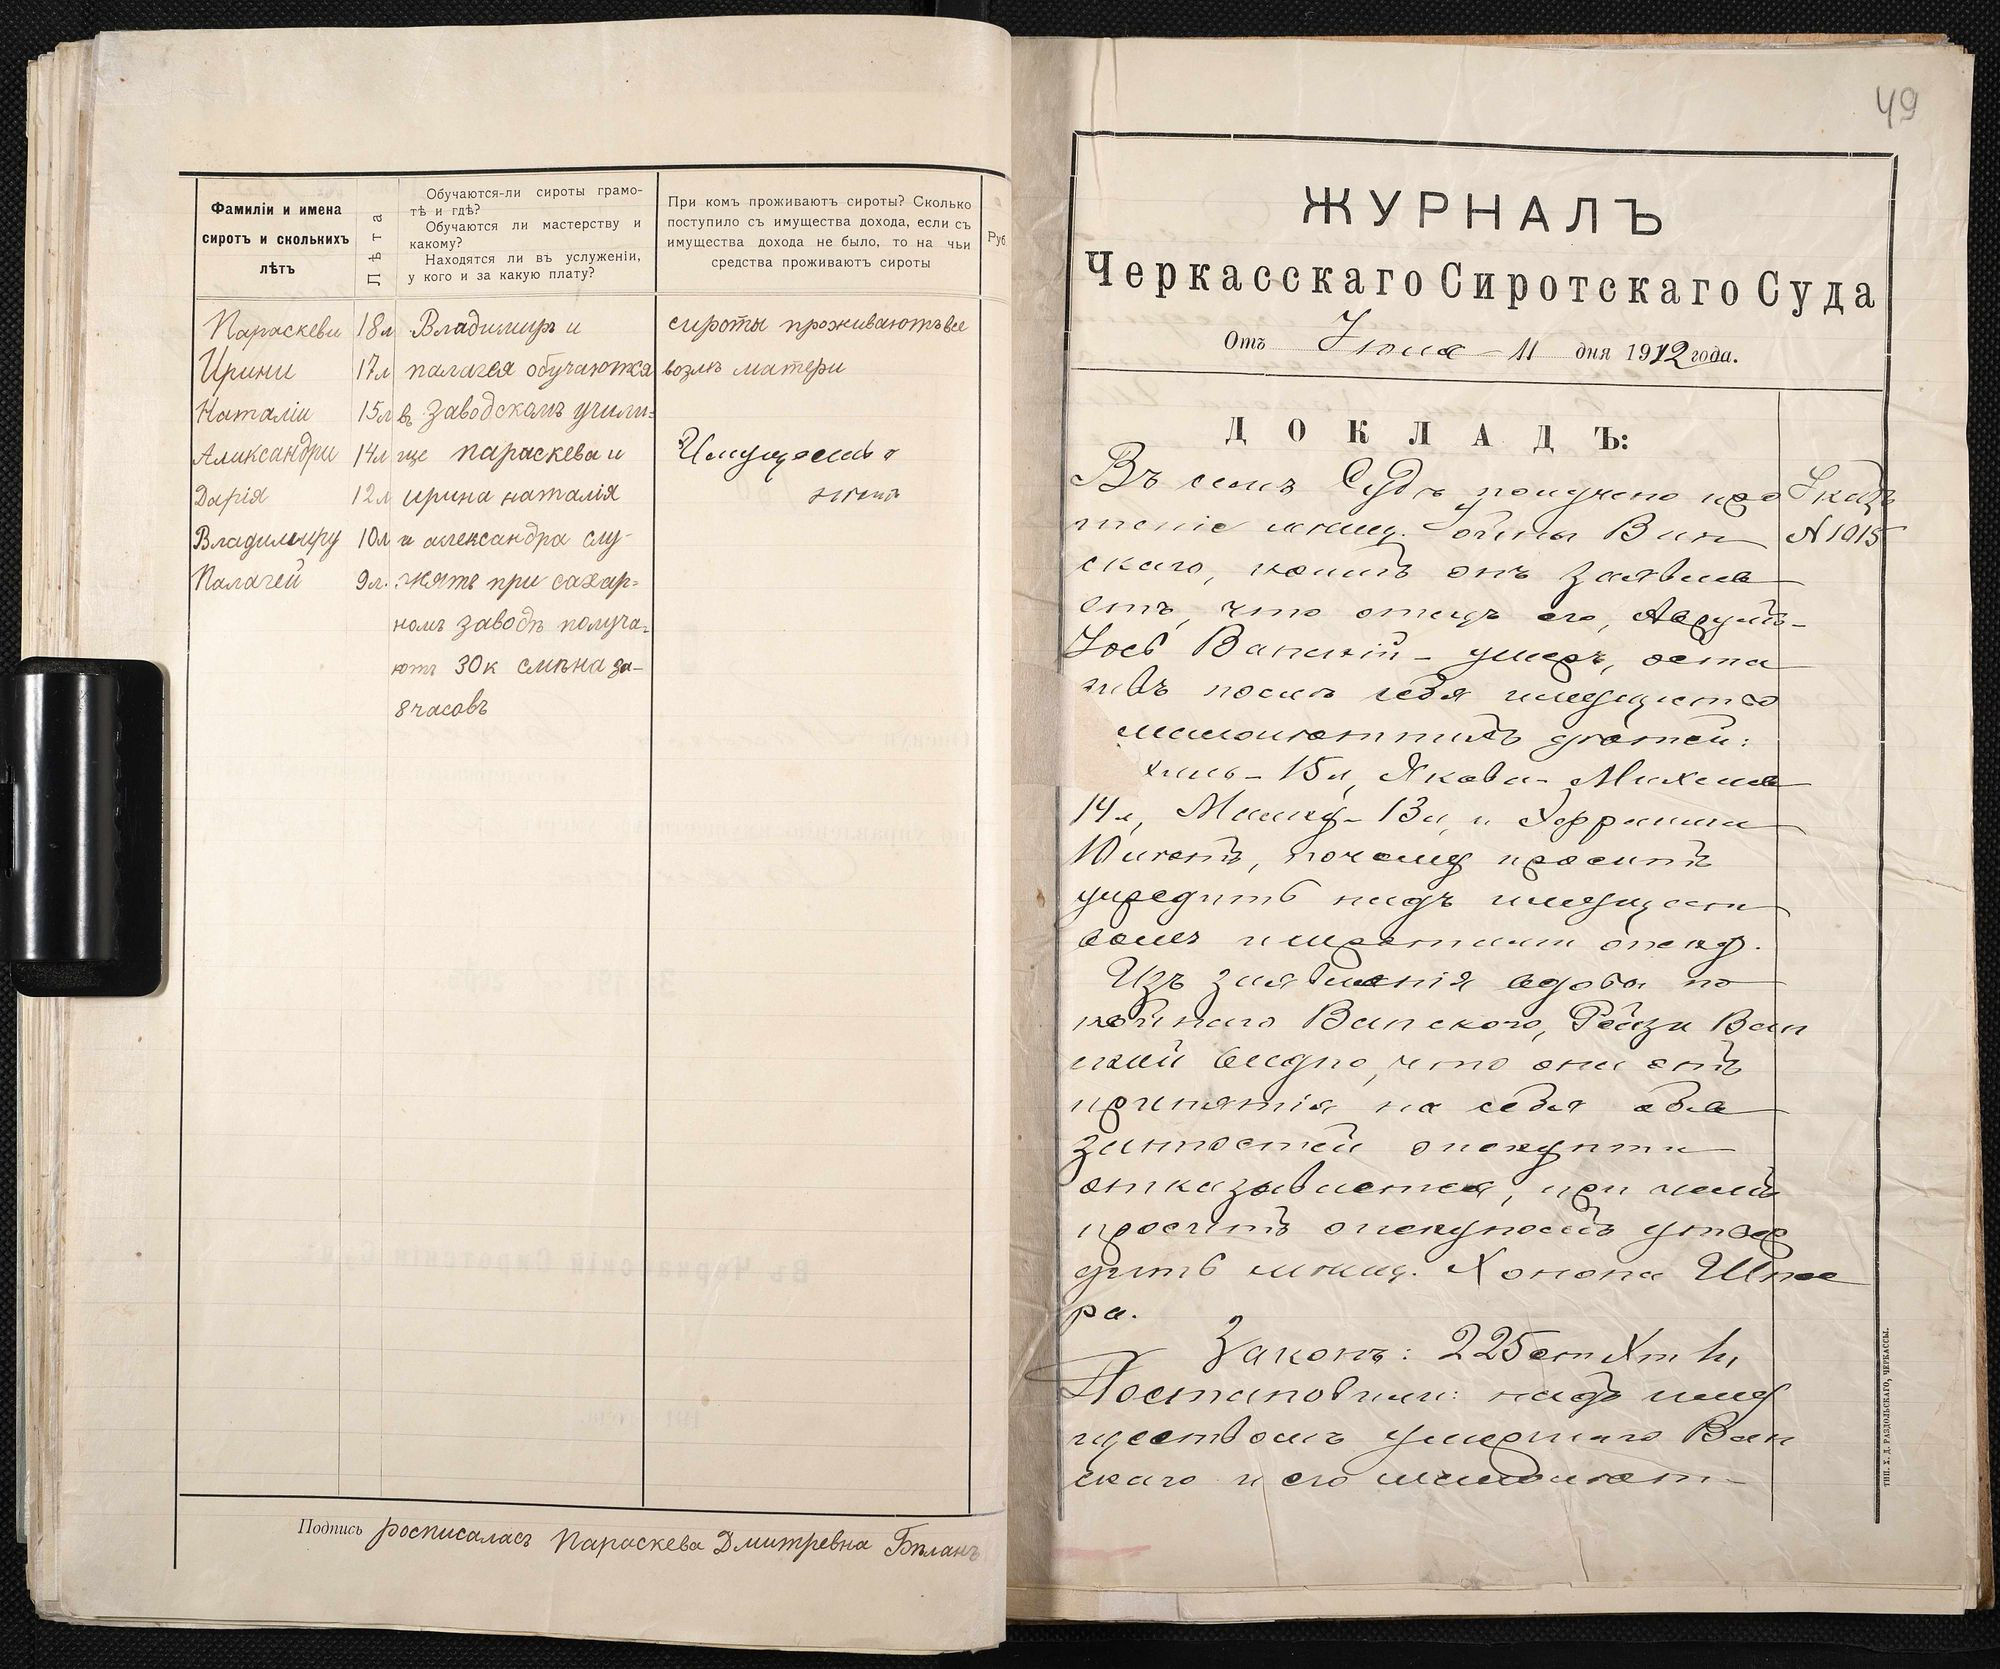 Фамиліи и имена
сиротъ и сколькихъ
лѣтъ
Лѣта
Обучаются-ли сироты грамо-
тѣ и гдѣ?
Обучаются ли мастерству и
какому?
Находятся ли въ услуженіи,
у кого и за какую плату?
При комъ проживаютъ сироты? Сколько
поступило съ имущества дохода, если съ
имущества дохода не было, то на чьи
средства проживаютъ сироты
Руб
Параскеви 18л Владимиръ и сироты проживаютъ все
Ирини 17л палагея обучаются возлѣ матери
Наталіи 15л в заводскомъ учили-
Александри 14л ще параскева и Имущества
Дарія 12л ирина наталія нѣтъ
Владимиру 10л и александра слу-
Палагей 9л. жять при сахар-
номъ заводѣ получа-
ютъ 30к смѣна за-
8 часовъ
Подпись росписалась Параскева Дмитревна Бѣланъ
49
ЖУРНАЛЪ
Черкасскаго Сиротскаго Суда
Отъ Іюня - 11 дня 1912 года.
ДОКЛАДЪ:
Въ семъ Судѣ получено про
Указъ
шеніе мѣщ. Вин
№ 1015
скаго, коимъ онъ заявля
етъ, что отецъ его,
умеръ, оста
вивъ послѣ себя имущество
малолѣтнихъ дѣтей:
15л, Якова-
14л, 13л, и
10 лѣтъ, почему проситъ
учредить надъ имущест
вомъ и сиротами опеку.
Изъ заявленія вдовы по
койнаго Ванскаго, Рейзи Ван
ской видно, что она отъ
принятія на себя обя
занностей опекунши
отказывается, при чемъ
проситъ опекуномъ утвер
дить мѣщ. Хонона Шпе
ра.
Законъ: 225 ст Х т 1ч
Постановили: надъ иму
ществомъ умершаго Ван
скаго и его малолѣт-
ТИП. Х. Д. РАЗДОЛЬСКАГО, ЧЕРКАССЫ.